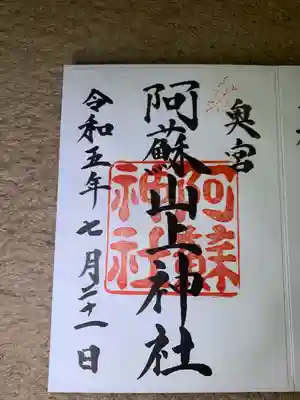 奥宮
阿蘇山上神社
阿蘇神社
令和五年七月二十一日